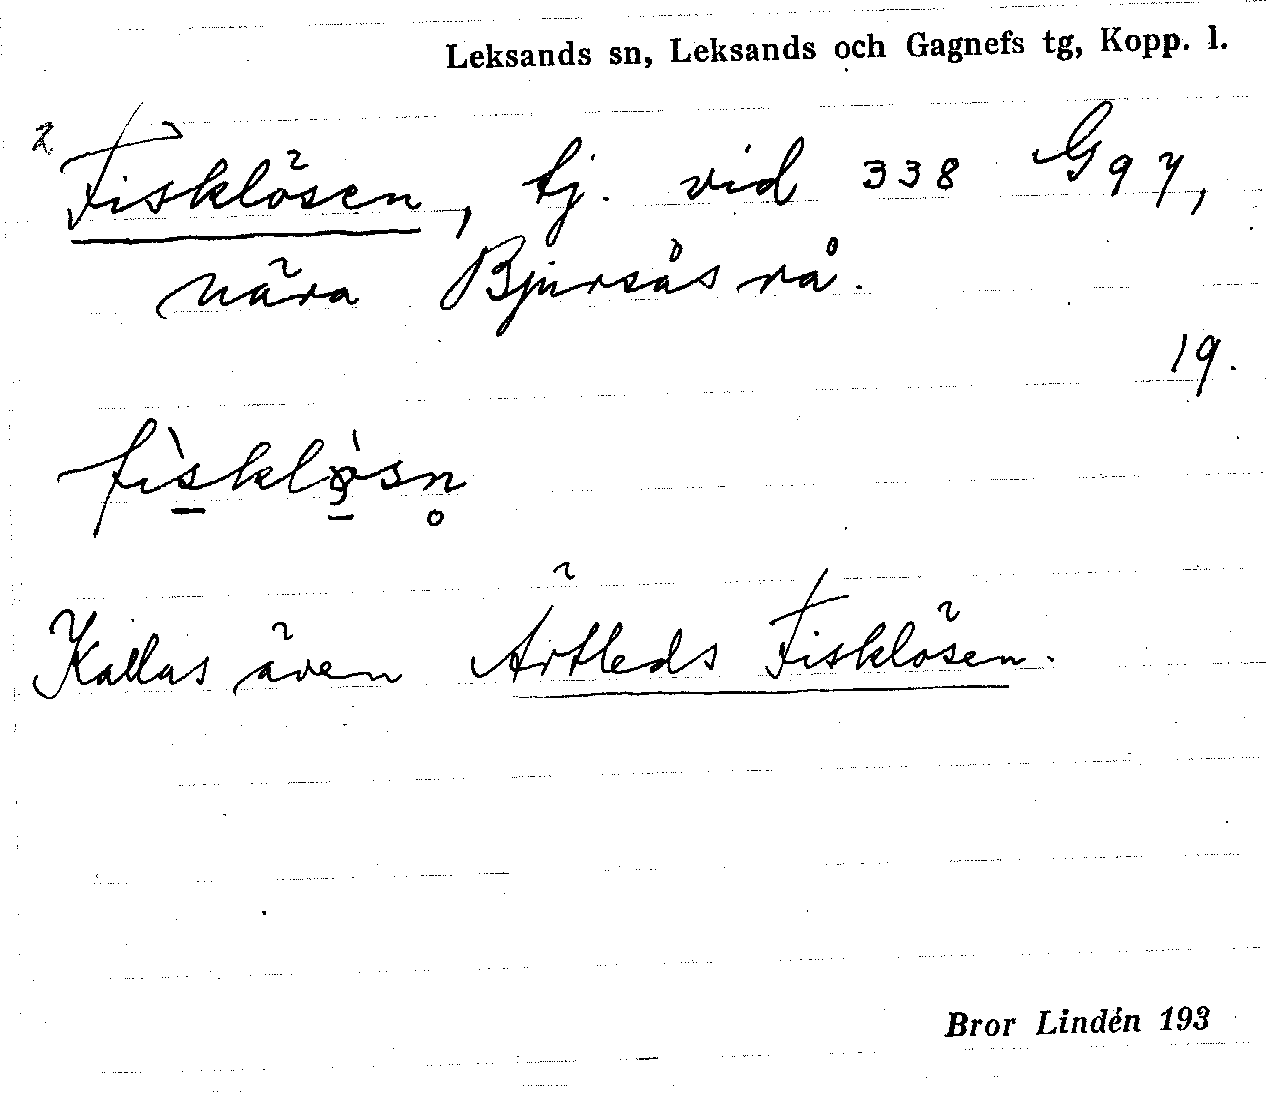 Leksands sn, Leksands och Gagnefs tg, Kopp. l.
2 Fisklösen, tj. vid 338 G 9 7,
nära Bjursås rå.
19.
Kallas även Ärtleds Fisklösen.
Bror Lindén 193